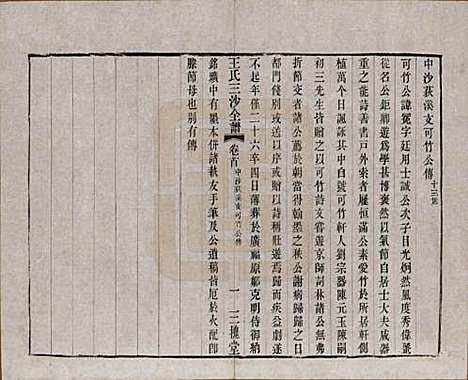 中沙荻溪支可竹公傳十三世
可竹公諱冕字廷用士誠公次子目光炯然風度秀偉蚤
從名公鉅卿遊為學甚博褎然以氣節自居士大夫咸器
重之能詩善書戶外索者屨恒滿公素愛竹于所居軒
植萬个日諷詠其中自號可竹軒人劉宗器陳元玉陳嗣
初三先生皆贈之以可竹詩文嘗遊京師詞林諸公無弗
折節交者諸公薦於朝當得翰墨之秩公謝病歸歸之日
都門餞別或送以序或贈以詩稱壯遊焉歸而疾益劇遂
不起年僅二十六卒四日薄葬於廣福原鄒克明侍御納
銘壙中有墨本併諸執友手筆及公遺稿皆厄於火配邱
滕節母也別有傳
王氏三沙全譜
卷首
中沙荻溪支可竹公傳
一
三槐堂